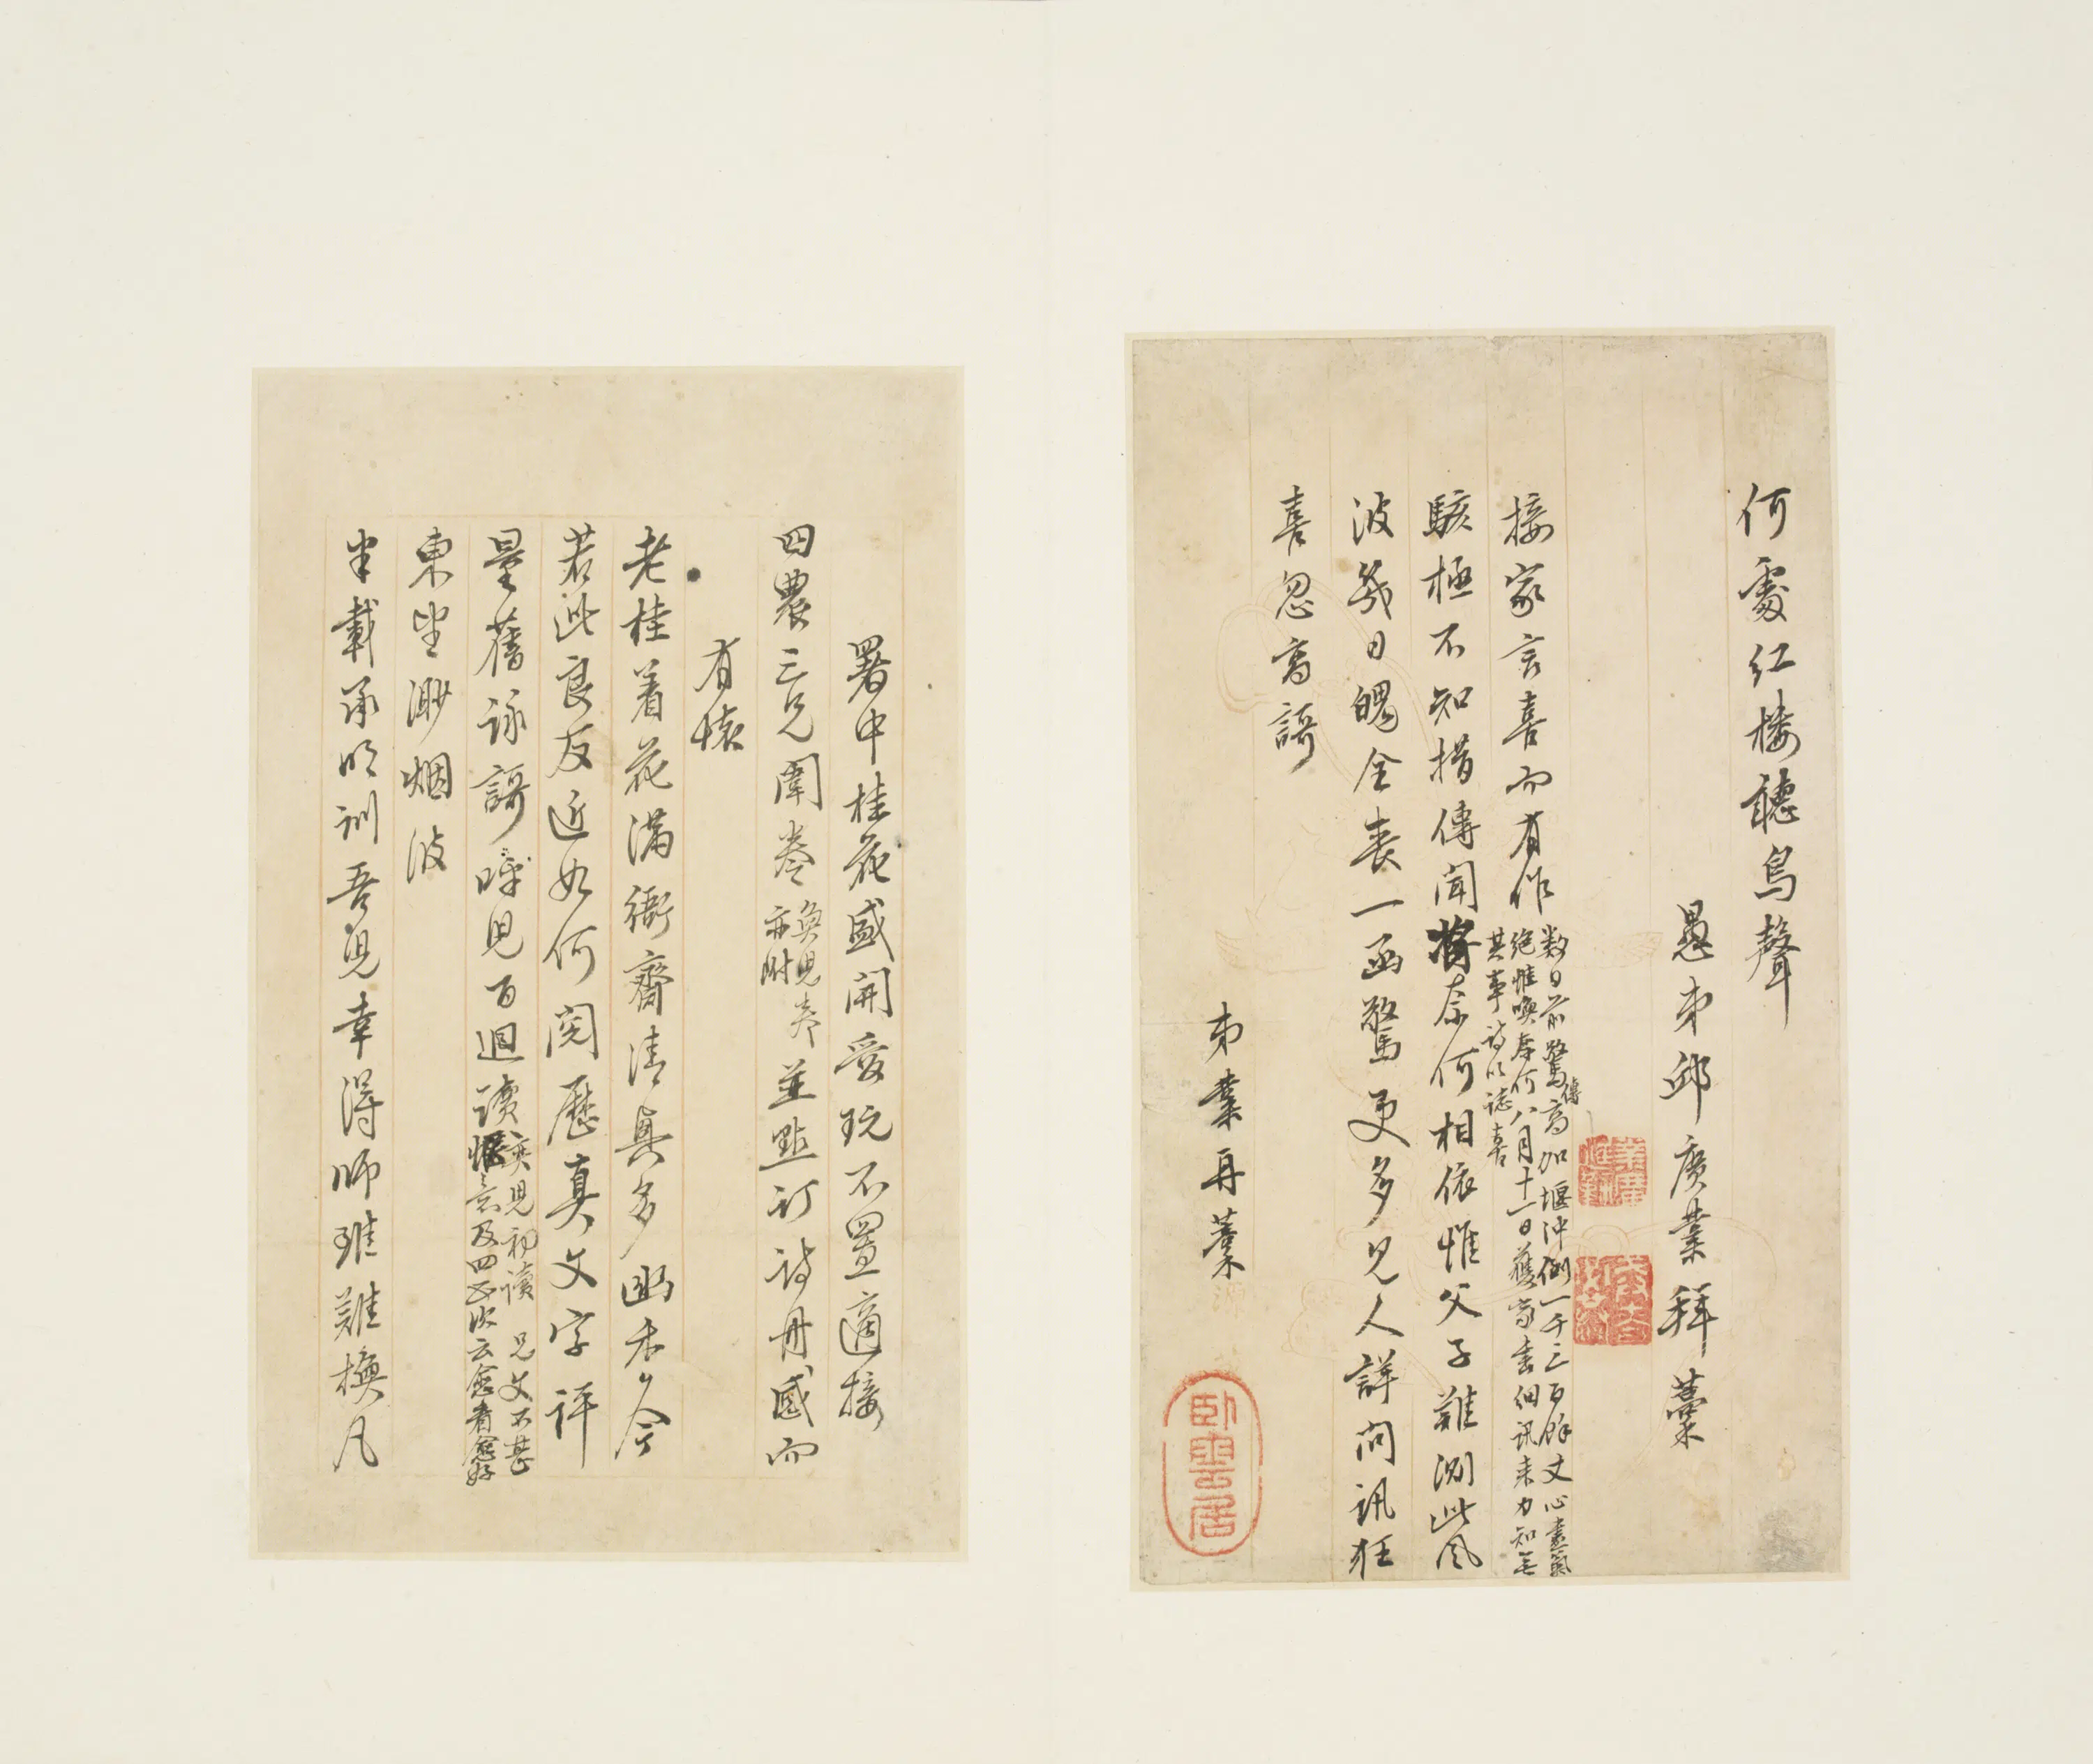 何處紅樓聽鳥聲
愚弟邱廣業拜藁
接家言喜而有作
数日前驚傳高加堰沖倒一千三百餘丈心畫氣
絕惟喚奈何八月十一日獲家書細訊来力知無
其事詩以誌喜
駭極不知措傳聞將奈何相依惟父子難測此風
波幾日魂全喪一函驚更多見人詳問訊狂
喜忽高謌
弟業再藁
卧雲居
署中桂花盛開愛玩不置適接
四農三兄闈卷
奐児卷
亦附
並點訂詩冊感而
有懐
老桂着花滿衙齋清興多幽香今
若此良友近如何閱歷真文字評
量舊詠謌呼児百迴讀
奕児初讀 兄文不甚
愜意及四五次云愈看愈好
東望渺烟波
半載承明訓吾児幸得師錐難換凡